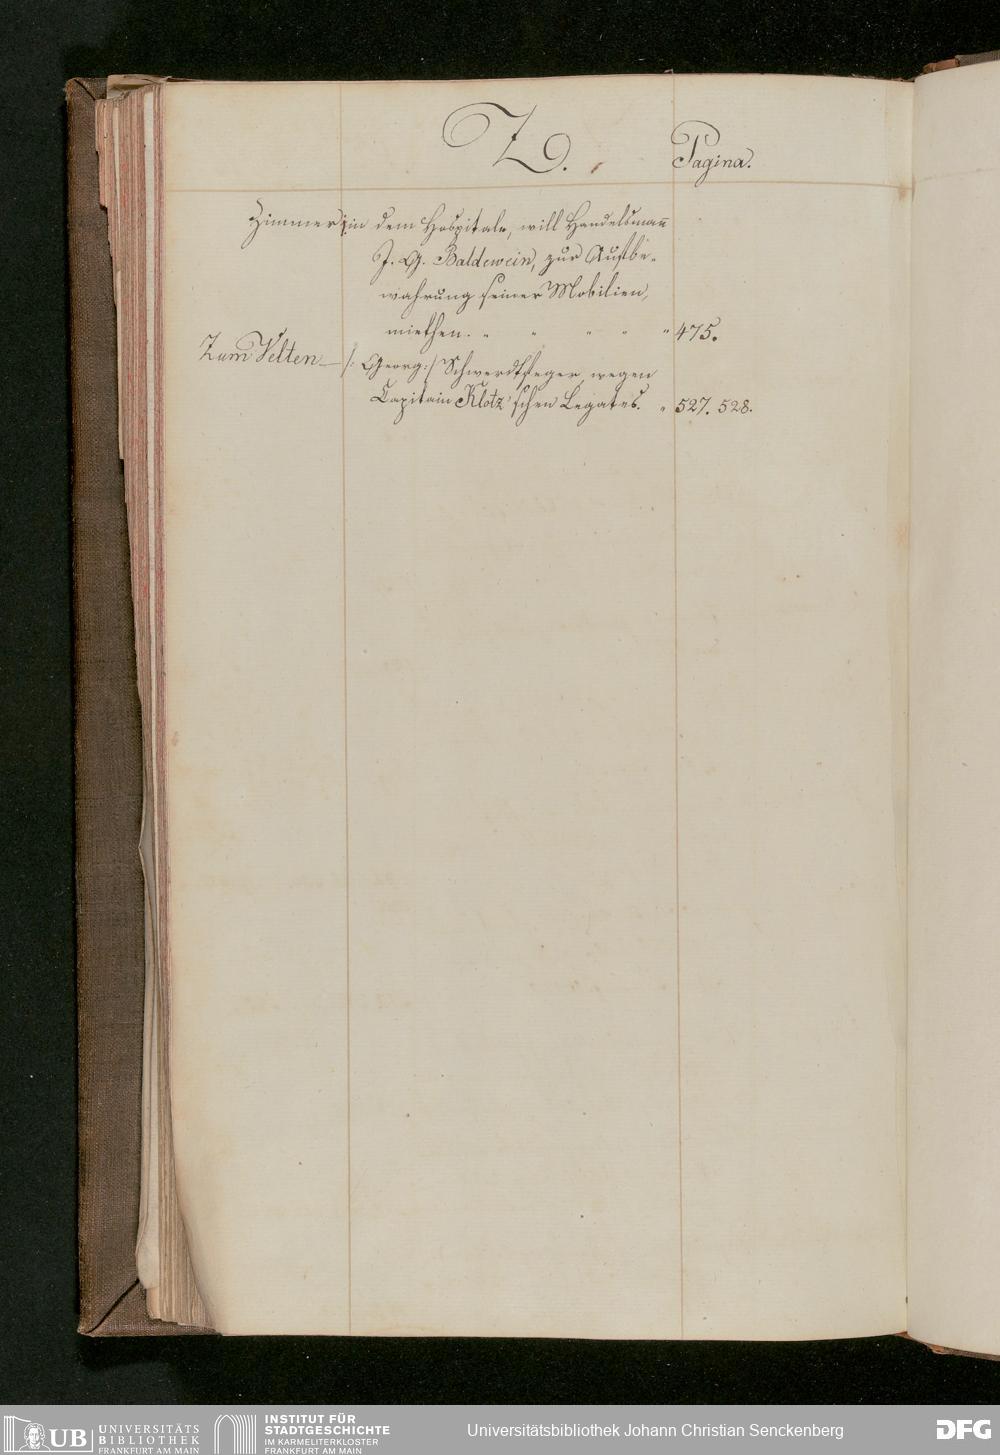 Z.
Pagina.
Zimmer, in dem Hospitale, will Handelsmañ
J. G. Baldewein, zur Aufbe-
wahrung seiner Mobilien,
miethen. " " " " " 475.
Zum Velten — /: Georg :/ Schwerdtfeger, wegen
Capitain Klotz'schen Legates. " 527. 528.
UB UNIVERSITÄTS
BIBLIOTHEK
FRANKFURT AM MAIN
INSTITUT FÜR
STADTGESCHICHTE
IM KARMELITERKLOSTER
FRANKFURT AM MAIN
Universitätsbibliothek Johann Christian Senckenberg
DFG